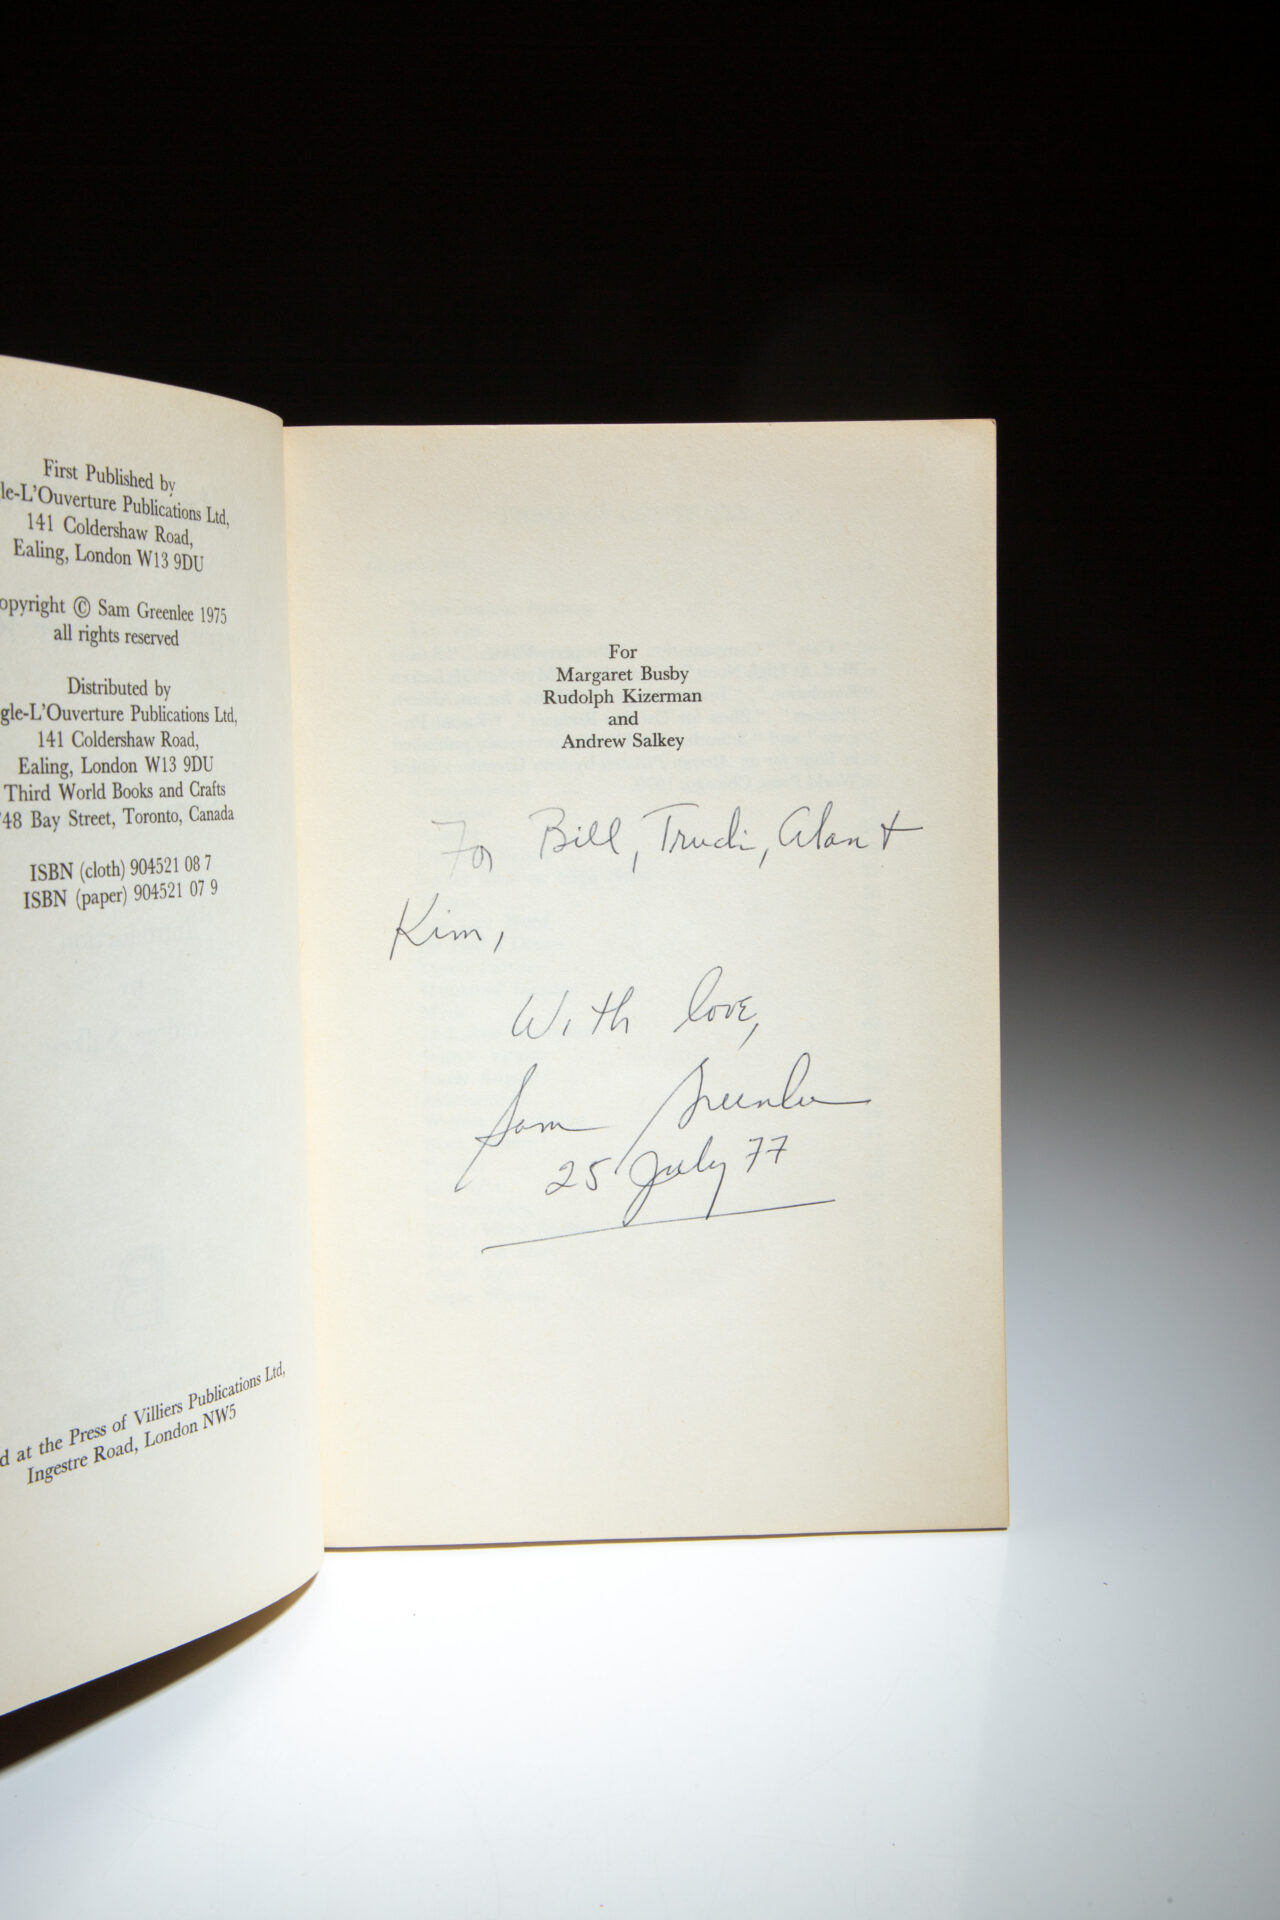 First Published by
le-L'Ouverture Publications Ltd,
141 Coldershaw Road,
Ealing, London W13 9DU
opyright © Sam Greenlee 1975
all rights reserved
Distributed by
gle-L'Ouverture Publications Ltd,
141 Coldershaw Road,
Ealing, London W13 9DU
Third World Books and Crafts
48 Bay Street, Toronto, Canada
ISBN (cloth) 904521 08 7
ISBN (paper) 904521 07 9
d at the Press of Villiers Publications Ltd,
Ingestre Road, London NW5
For
Margaret Busby
Rudolph Kizerman
and
Andrew Salkey
For Bill, Trudi, Alan +
Kim,
With love,
Sam Greenlee
25 July 77